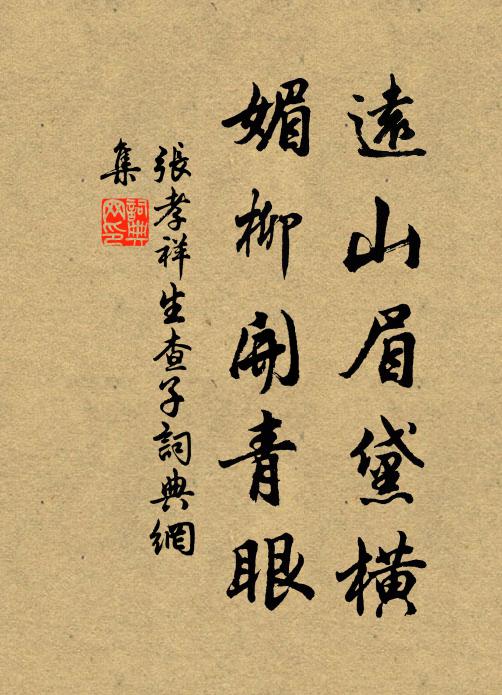 遠山眉黛橫
媚柳開青眼
張孝祥生查子詞典網
集
詞典
网印